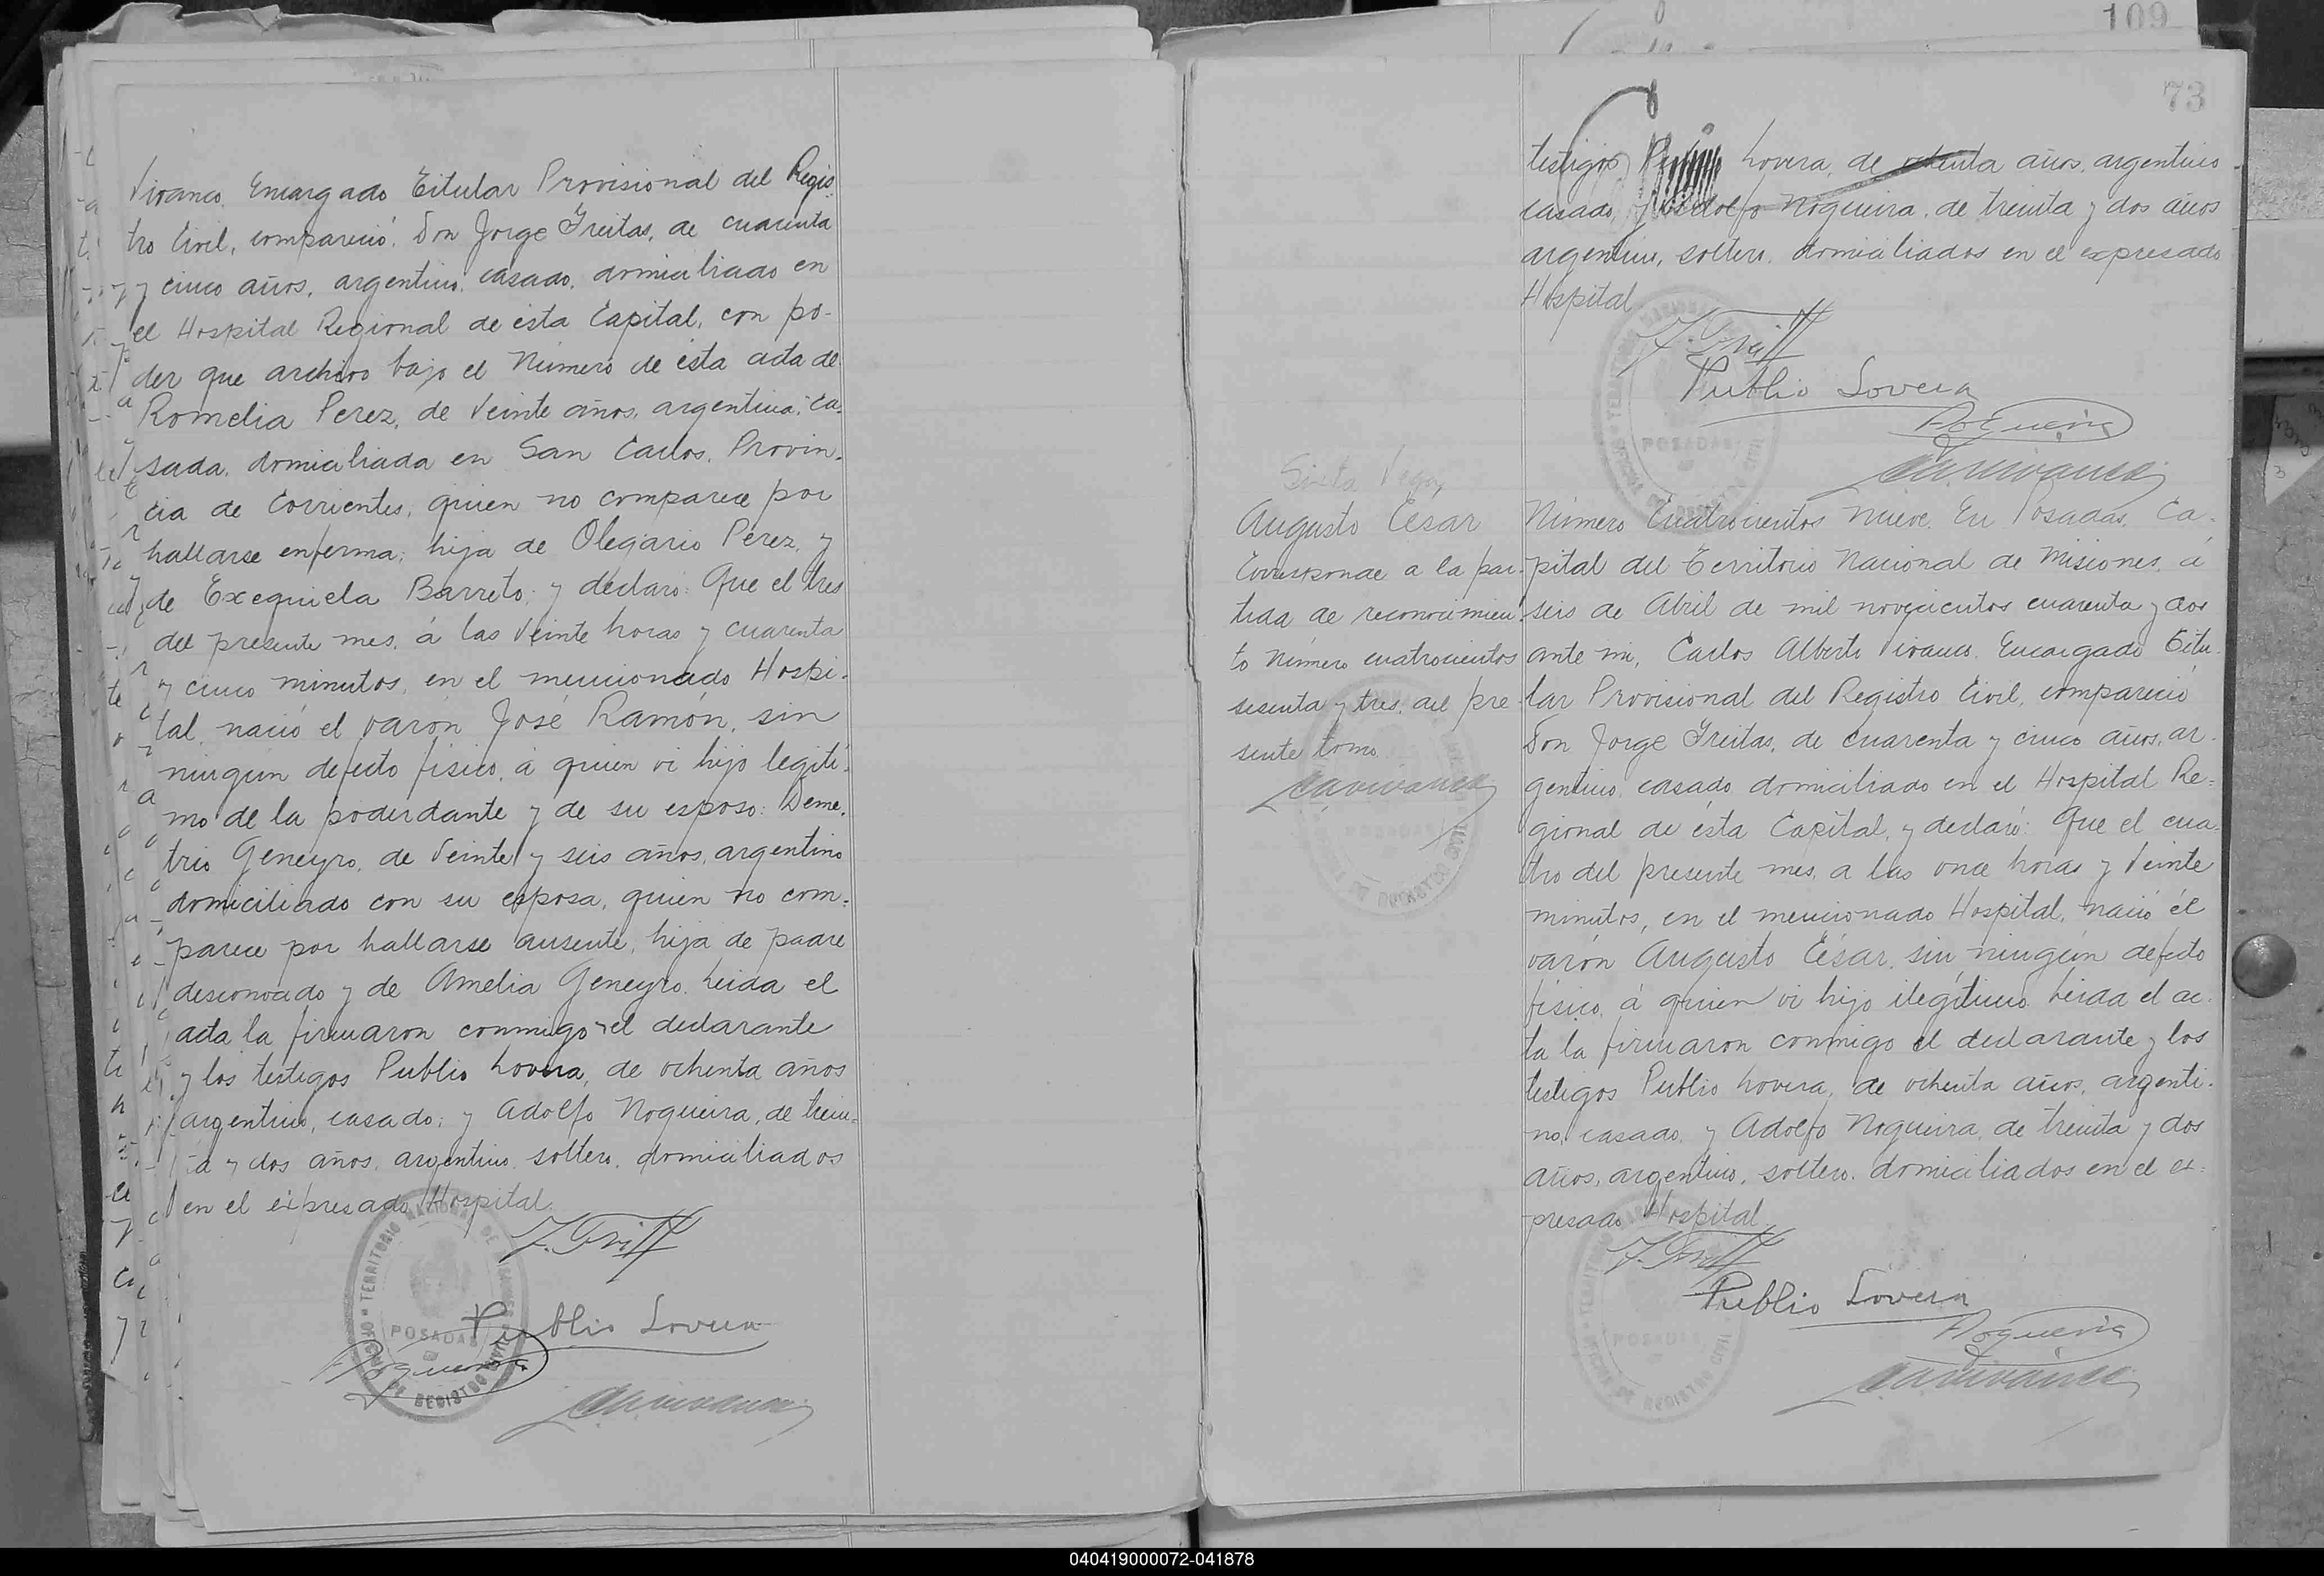 Vivanco, Encargado Titular Provisional del Regis-
tro Civil, compareció: Don Jorge Freitas, de cuarenta
y cinco años, argentino, casado, domiciliado en
el Hospital Regional de ésta Capital, con po-
der que archivo bajo el Número de ésta acta de
Romelia Perez, de Veinte años, argentina, ca-
sada, domiciliada en San Carlos, Provin-
cia de Corrientes, quien no comparece por
hallarse enferma; hija de Olegario Pérez, y
de Exequiela Barreto; y declaró: Que el tres
del presente mes, á las Veinte horas y cuarenta
y cinco minutos, en el mencionado Hospi-
tal, nació el varón José Ramón, sin
ningún defecto físico, á quien vi hijo legíti-
mo de la poderdante y de su esposo: Deme-
trio Geneyro, de Veinte y seis años, argentino
domiciliado con su esposa, quien no com-
parece por hallarse ausente, hija de padre
desconocido y de Amelia Geneyro. Leida el
acta la firmaron conmigo el declarante
y los testigos Publio Lovera, de ochenta años
argentino, casado; y Adolfo Nogueira, de trein-
ta y dos años, argentino, soltero, domiciliados
en el expresado Hospital.
TERRITORIO NACIONAL DE MISIONES
POSADAS
OFICINA DE REGISTRO CIVIL
Publio Lovera
Nogueira
CAVivanco
109
73
testigos Lovera, de ochenta años, argentino
casado, y Adolfo Nogueira, de treinta y dos años
argentino, soltero, domiciliados en el expresado
Hospital.
POSADAS
Publio Lovera
Nogueira
CAVivanco
Augusto César
Corresponde a la par-
tida de reconocimien-
to Número cuatrocientos
sesenta y tres, del pre-
sente tomo.
CAVivanco
Número Cuatrocientos nueve. En Posadas, Ca-
pital del Territorio Nacional de Misiones, á
seis de Abril de mil novecientos cuarenta y dos
ante mi, Carlos Alberto Vivanco, Encargado Titu-
lar Provisional del Registro Civil, compareció
Don Jorge Freitas, de cuarenta y cinco años, ar-
gentino, casado, domiciliado en el Hospital Re-
gional de ésta Capital, y declaró: Que el cua-
tro del presente mes, a las once horas y Veinte
minutos, en el mencionado Hospital, nació él
varón Augusto César, sin ningún defecto
físico, á quien vi hijo ilegítimo. Leida el ac-
ta la firmaron conmigo el declarante y los
testigos Publio Lovera, de ochenta años, argenti-
no, casado, y Adolfo Nogueira, de treinta y dos
años, argentino, soltero, domiciliados en el ex-
presado Hospital.
POSADAS
Publio Lovera
Nogueira
CAVivanco
040419000072-041878